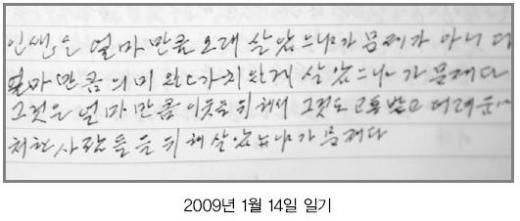 인생은 얼마만큼 오래 살았느냐가 문제가 아니다
얼마만큼 의미 있고 가치있게 살았느냐가 문제다
그것은 얼마만큼 이웃을 위해서 그것도 고통받고 어려움에
처한 사람들을 위해 살았느냐가 문제다
2009년 1월 14일 일기